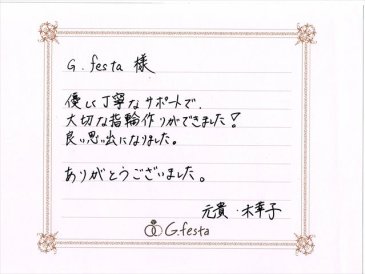 G.festa 様
優しく丁寧なサポートで、
大切な指輪作りができました!
良い思い出になりました。
ありがとうございました。
元貴・木幸子
G.festa